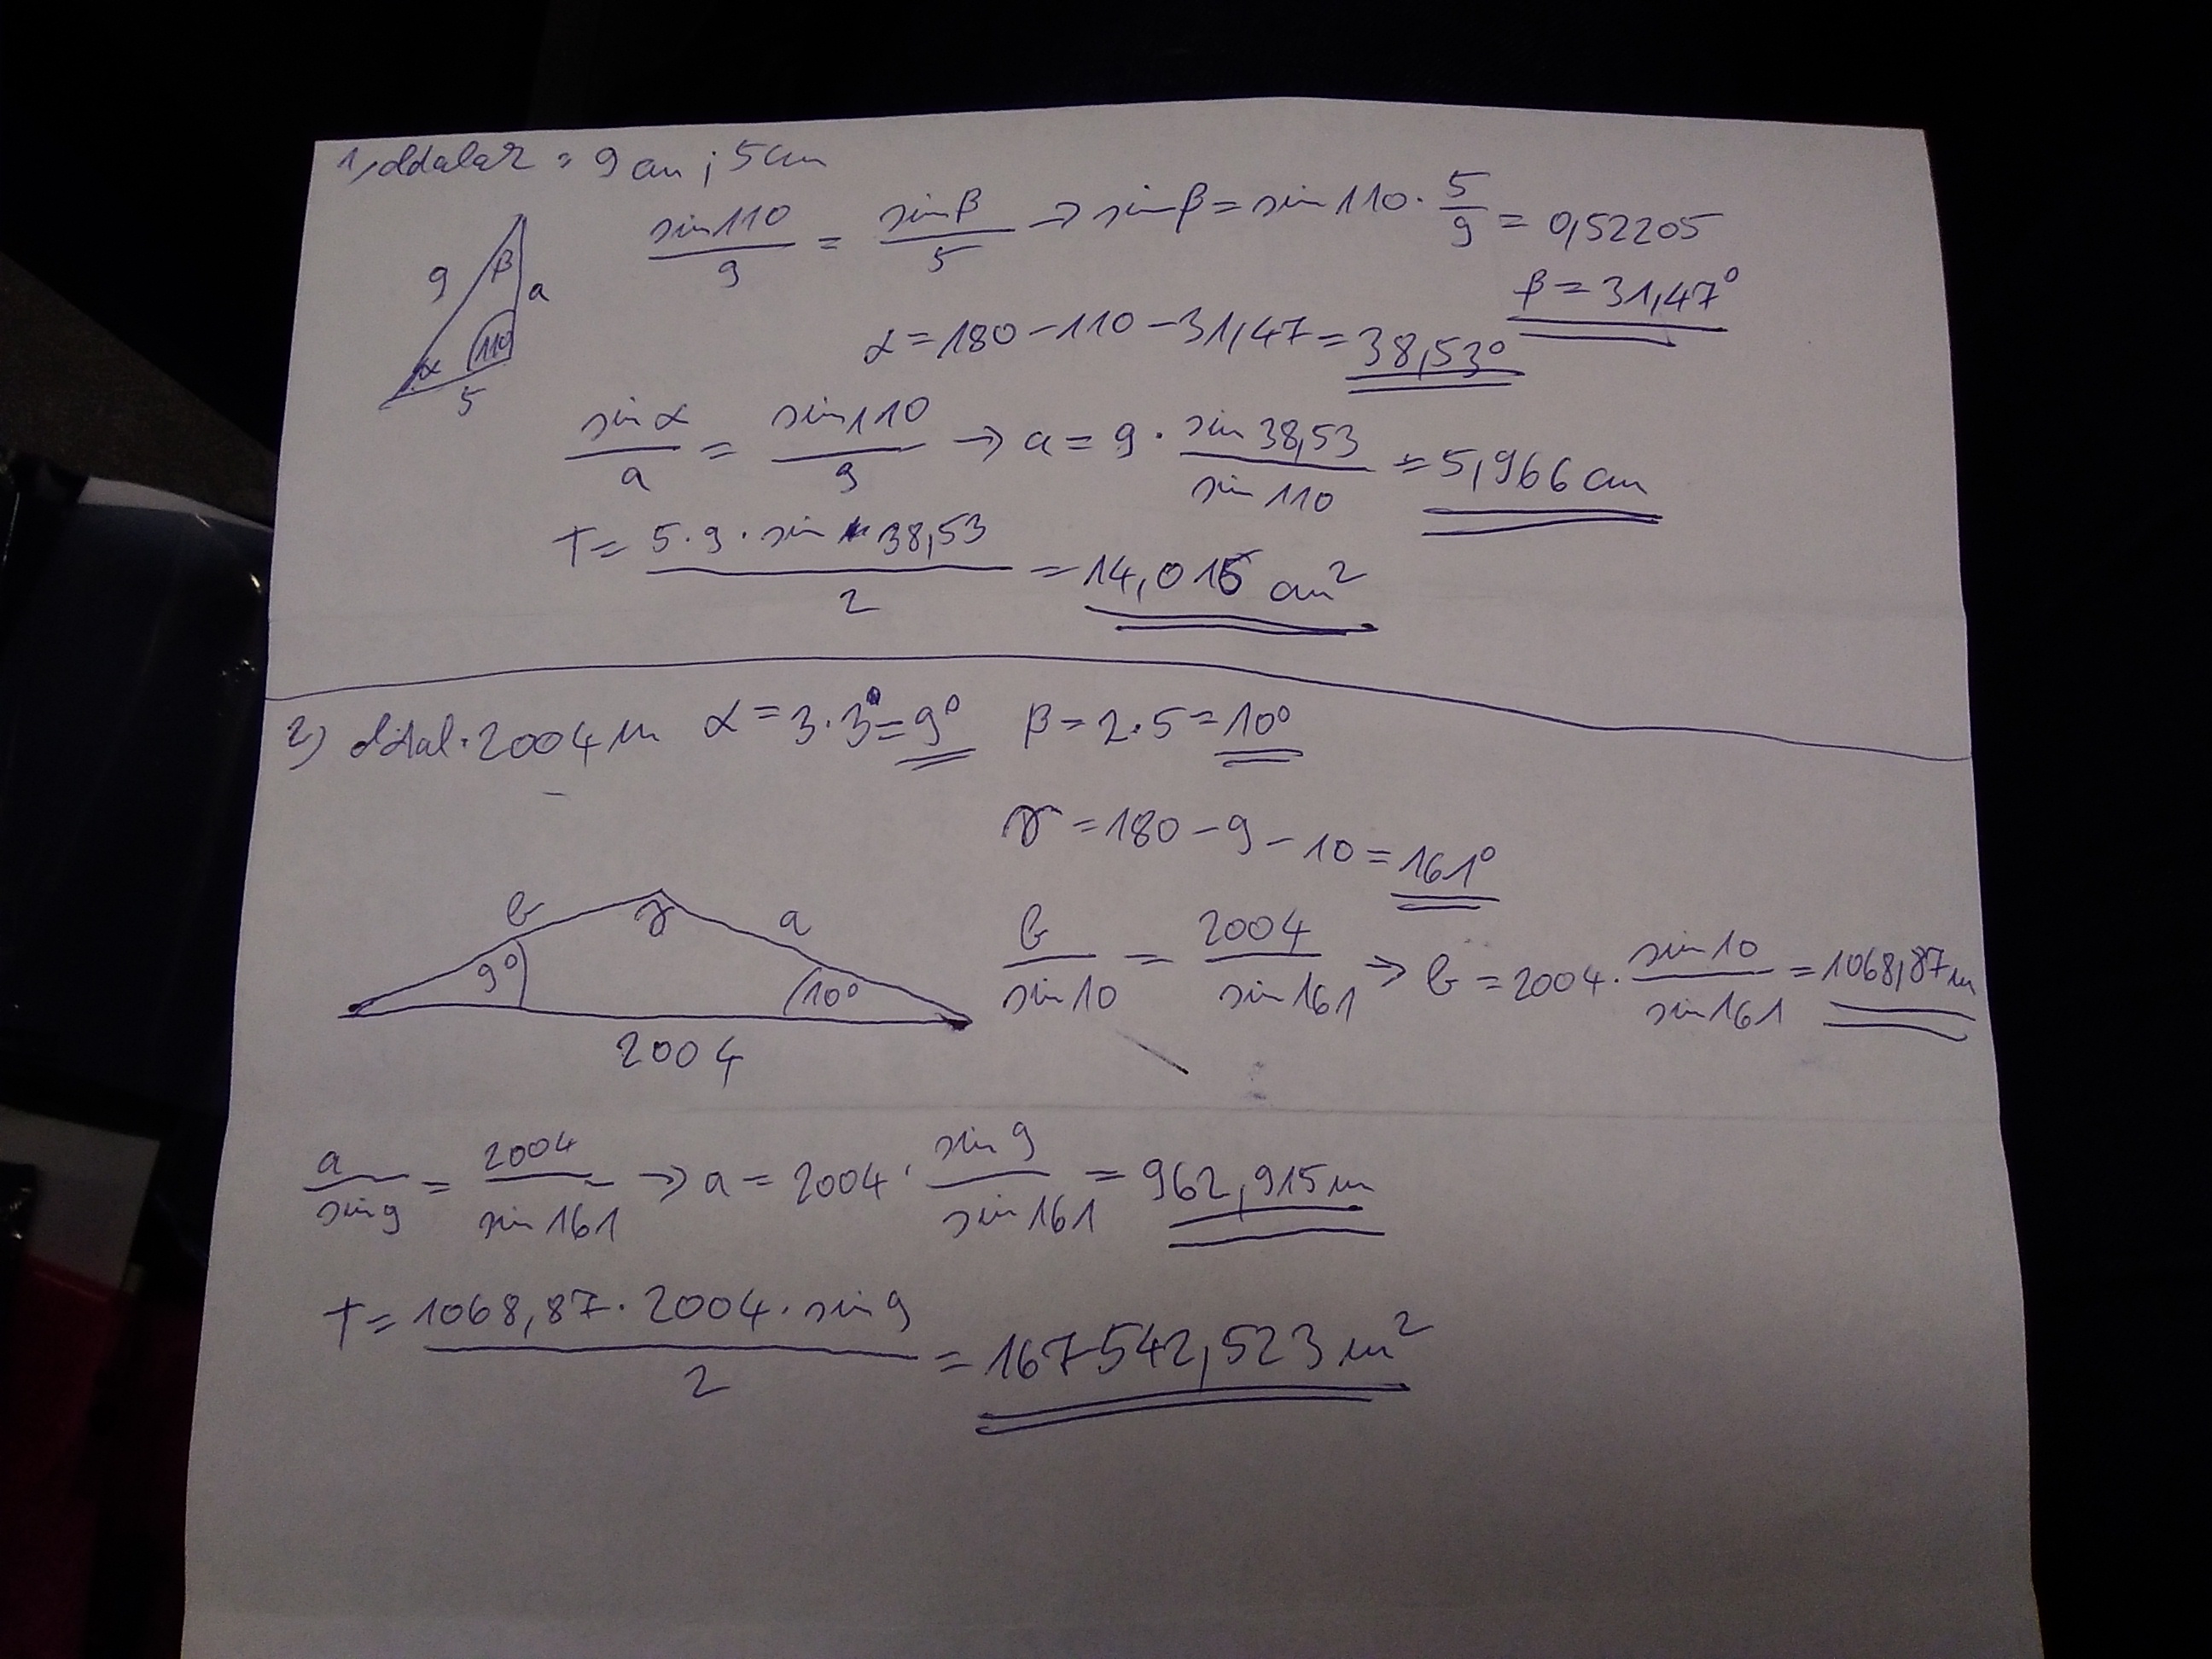 1, oldalak = 9 cm ; 5 cm
sin110/9 = sinβ/5 → sinβ = sin110 · 5/9 = 0,52205
β = 31,47°
9 β a
α 110
5
α = 180 - 110 - 31,47 = 38,53°
sin α/a = sin110/9 → a = 9 · sin 38,53/sin 110 = 5,966 cm
T = 5·9·sin 38,53/2 = 14,016 cm²
2) oldal = 2004 m α = 3·3° = 9° β = 2·5 = 10°
γ = 180 - 9 - 10 = 161°
b γ a
9° 10°
2004
b/sin10 = 2004/sin161 → b = 2004 · sin10/sin161 = 1068,87 m
a/sin9 = 2004/sin161 → a = 2004 · sin9/sin161 = 962,915 m
T = 1068,87 · 2004 · sin9/2 = 167542,523 m²